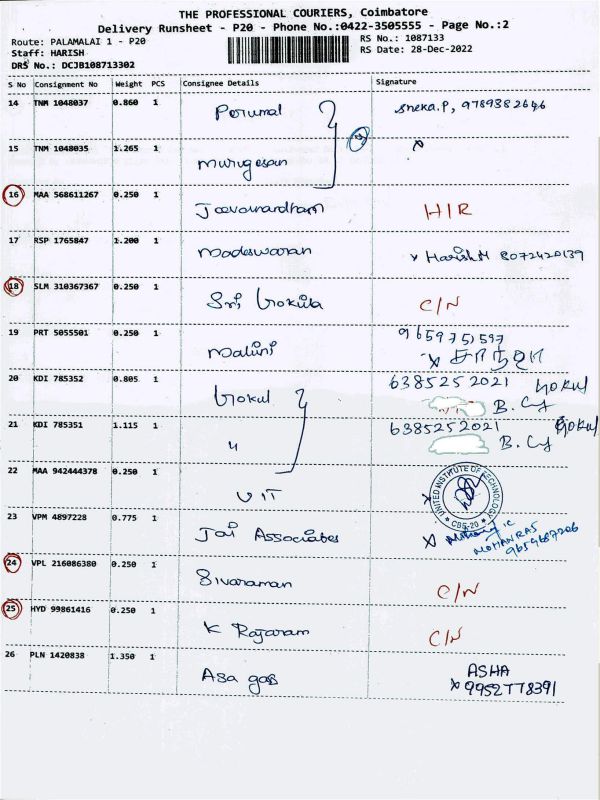 THE PROFESSIONAL COURIERS, Coimbatore
Delivery Runsheet - P20 - Phone No.:0422-3505555 - Page No.:2
Route: PALAMALAI 1 - P20 RS No.: 1087133
Staff: HARISH RS Date: 28-Dec-2022
DRS No.: DCJB108713302
S No Consignment No Weight PCS Consignee Details Signature
14 TNM 1048037 0.860 1 Perumal Sneka.P, 9789382646
15 TNM 1048035 1.265 1 Murugesan x
16 MAA 568611267 0.250 1 H/R
17 RSP 1765847 1.200 1 Madeswaran x Harish M 8072420139
18 SLM 310367367 0.250 1 Sri Gokila C/N
19 PRT 5055501 0.250 1 Malini 9659751597
x
20 KDI 785352 0.805 1 Gokul 6385252021 Gokul
21 KDI 785351 1.115 1 " 6385252021 Gokul
22 MAA 942444378 0.250 1 UIT x
UNITED INSTITUTE OF TECHNOLOGY
CBE-20
23 VPM 4897228 0.775 1 Jai Associates x
MOHANRAS
9659687206
24 VPL 216086380 0.250 1 Sivaraman C/N
25 HYD 99861416 0.250 1 K Rajaram C/N
26 PLN 1420838 1.350 1 Asa gas ASHA
x 9952778391